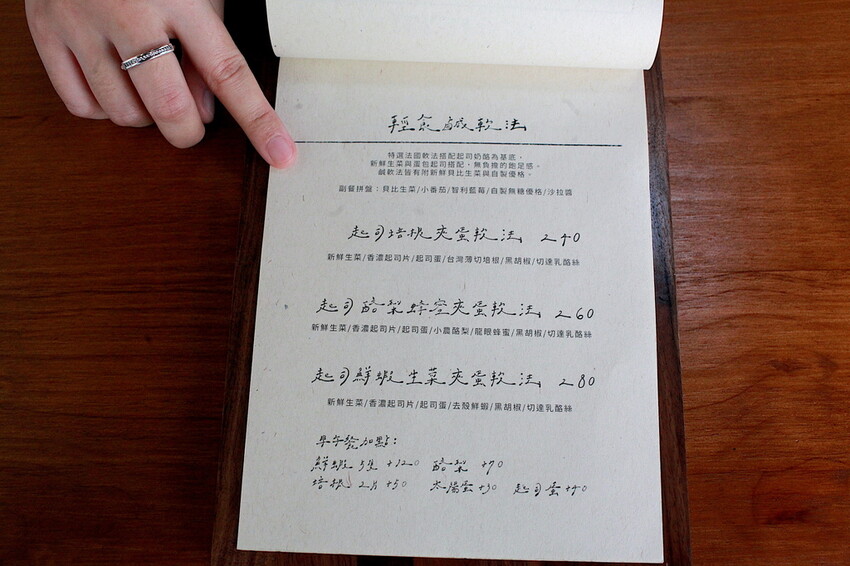 輕食鹹軟法
特選法國軟法搭配起司奶酪為基底，
新鮮生菜與蛋包起司搭配，無負擔的飽足感。
鹹軟法皆有附新鮮貝比生菜與自製優格。
副餐拼盤：貝比生菜/小番茄/智利藍莓/自製無糖優格/沙拉醬
起司培根夾蛋軟法 240
新鮮生菜/香濃起司片/起司蛋/台灣薄切培根/黑胡椒/切達乳酪絲
起司酪梨蜂蜜夾蛋軟法 260
新鮮生菜/香濃起司片/起司蛋/小農酪梨/龍眼蜂蜜/黑胡椒/切達乳酪絲
起司鮮蝦生菜夾蛋軟法 280
新鮮生菜/香濃起司片/起司蛋/去殼鮮蝦/黑胡椒/切達乳酪絲
早午餐加點：
鮮蝦 5隻 +120 酪梨 +70
培根 2片 +50 太陽蛋 +30 起司蛋 +40